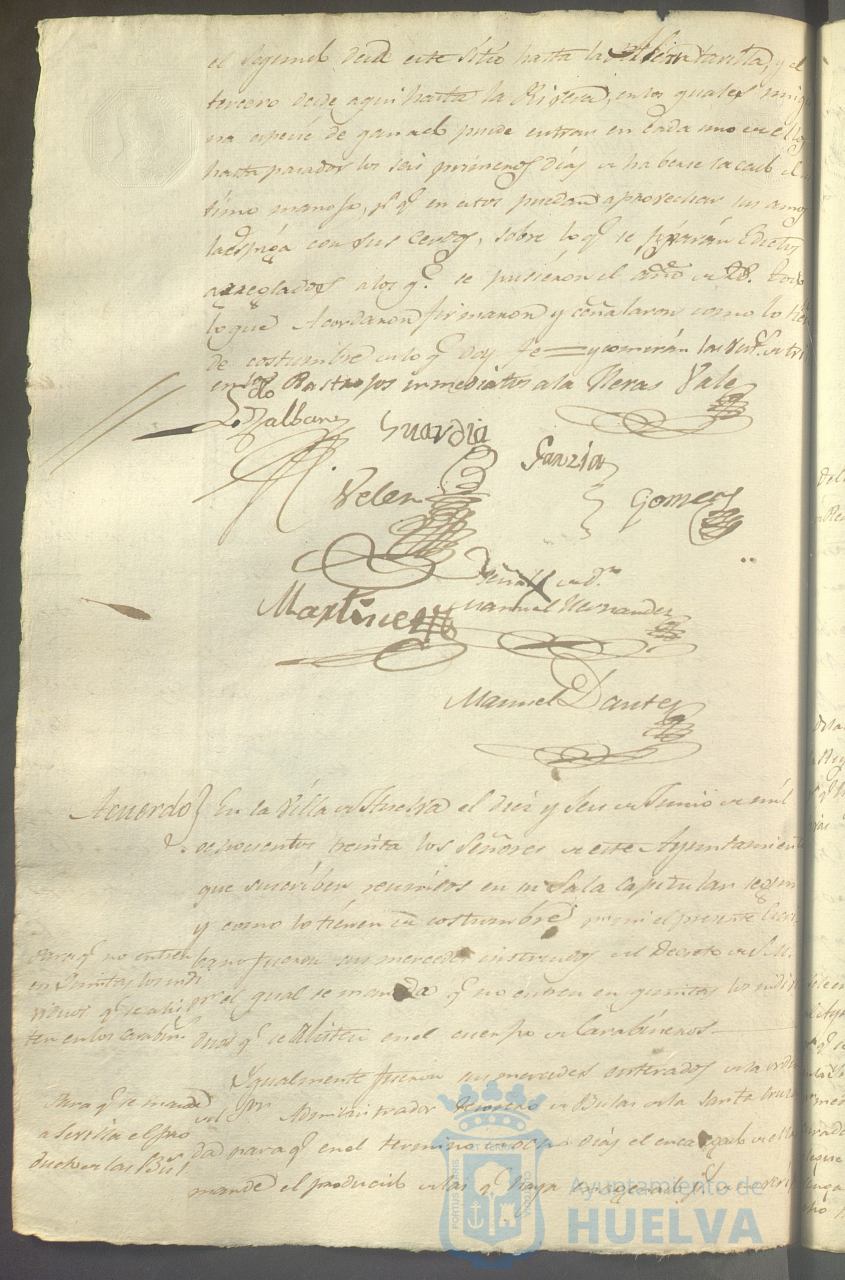 el segundo desde este sitio hasta la Alcantarilla, y el
tercero desde aqui hasta la Rivera, en los quales ning
na especie de ganado puede entrar en cada uno de ellos
hasta pasados los seis primeros dias de haberse sacado el
timo manojo, pª qᵉ en estos puedan aprovechar sus amos
la espiga con sus cerdos, sobre lo qᵉ se fixarán Edictos
arreglados a los qᵉ se pusieron el año de 28. todo
lo que Acordaron firmaron y señalaron como lo tien
de costumbre de lo qᵉ doy fe = y comerán las
en Rastrojos inmediatos a la Heras Vale
Guardia
Garzia
Velez
Gomez
Martinez
Señal de dⁿ
Manuel Hernandez
Manuel Dante
Acuerdo} En la Villa de Huelva el diez y seis de Junio de mil
ochocientos treinta los Señores de este Ayuntamiento
que suscriben reunidos en su Sala capitular segun
y como lo tienen de costumbre, por mi el presente Escri
bano fueron sus mercedes instruidos del Decreto de S.M.
por el qual se manda qᵉ no entren en quintas los indivi
duos qᵉ se alisten en el cuerpo de Carabineros
Para qᵉ no entren
en Quintas los indi
viduos qᵉ se alis
ten en los Carabinˢ
Igualmente fueron sus mercedes enterados de la orden
del Sʳ Administrador Tesorero de Bulas de la Santa Cruza
da para qᵉ en el termino de ocho dias el encargado de ellas
mande el producido de las qᵉ haya
Para qᵉ se mande
a Sevilla el pro
ducto de las Bulˢ
Ayuntamiento de
HUELVA